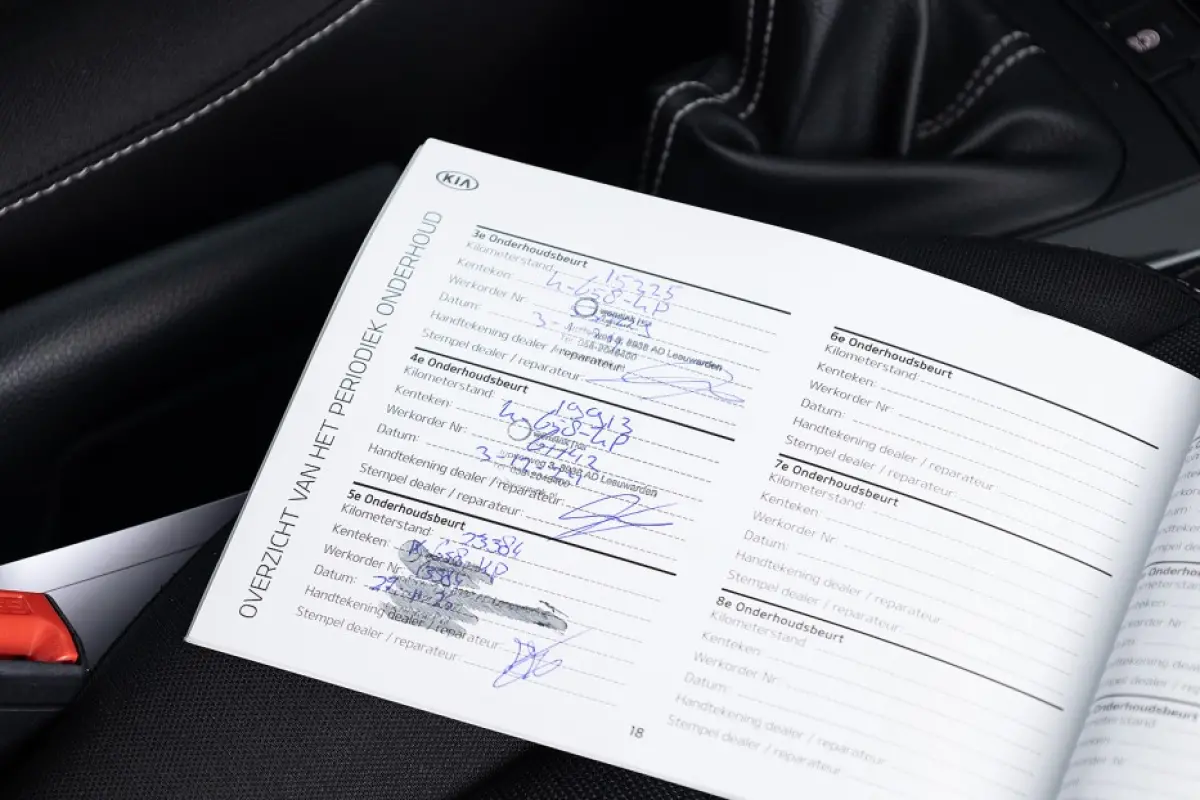 KIA
OVERZICHT VAN HET PERIODIEK ONDERHOUD
3e Onderhoudsbeurt
Kilometerstand: 15225
Kenteken: H-658-HP
Werkorder Nr:
Datum: 3-
8938 AD Leeuwarden
Handtekening dealer / reparateur:
Stempel dealer / reparateur:
4e Onderhoudsbeurt
Kilometerstand: 19913
Kenteken: H-658-HP
Werkorder Nr: 61142
Datum: 3-
8938 AD Leeuwarden
Handtekening dealer / reparateur:
Stempel dealer / reparateur:
5e Onderhoudsbeurt
Kilometerstand: 23384
Kenteken: H-658-HP
Werkorder Nr:
Datum: 27-11-20
Handtekening dealer / reparateur:
Stempel dealer / reparateur:
18
6e Onderhoudsbeurt
Kilometerstand:
Kenteken:
Werkorder Nr:
Datum:
Handtekening dealer / reparateur:
Stempel dealer / reparateur:
7e Onderhoudsbeurt
Kilometerstand:
Kenteken:
Werkorder Nr:
Datum:
Handtekening dealer / reparateur:
Stempel dealer / reparateur:
8e Onderhoudsbeurt
Kilometerstand
Kenteken:
Werkorder Nr:
Datum:
Handtekening dealer / reparateur:
Stempel dealer / reparateur: